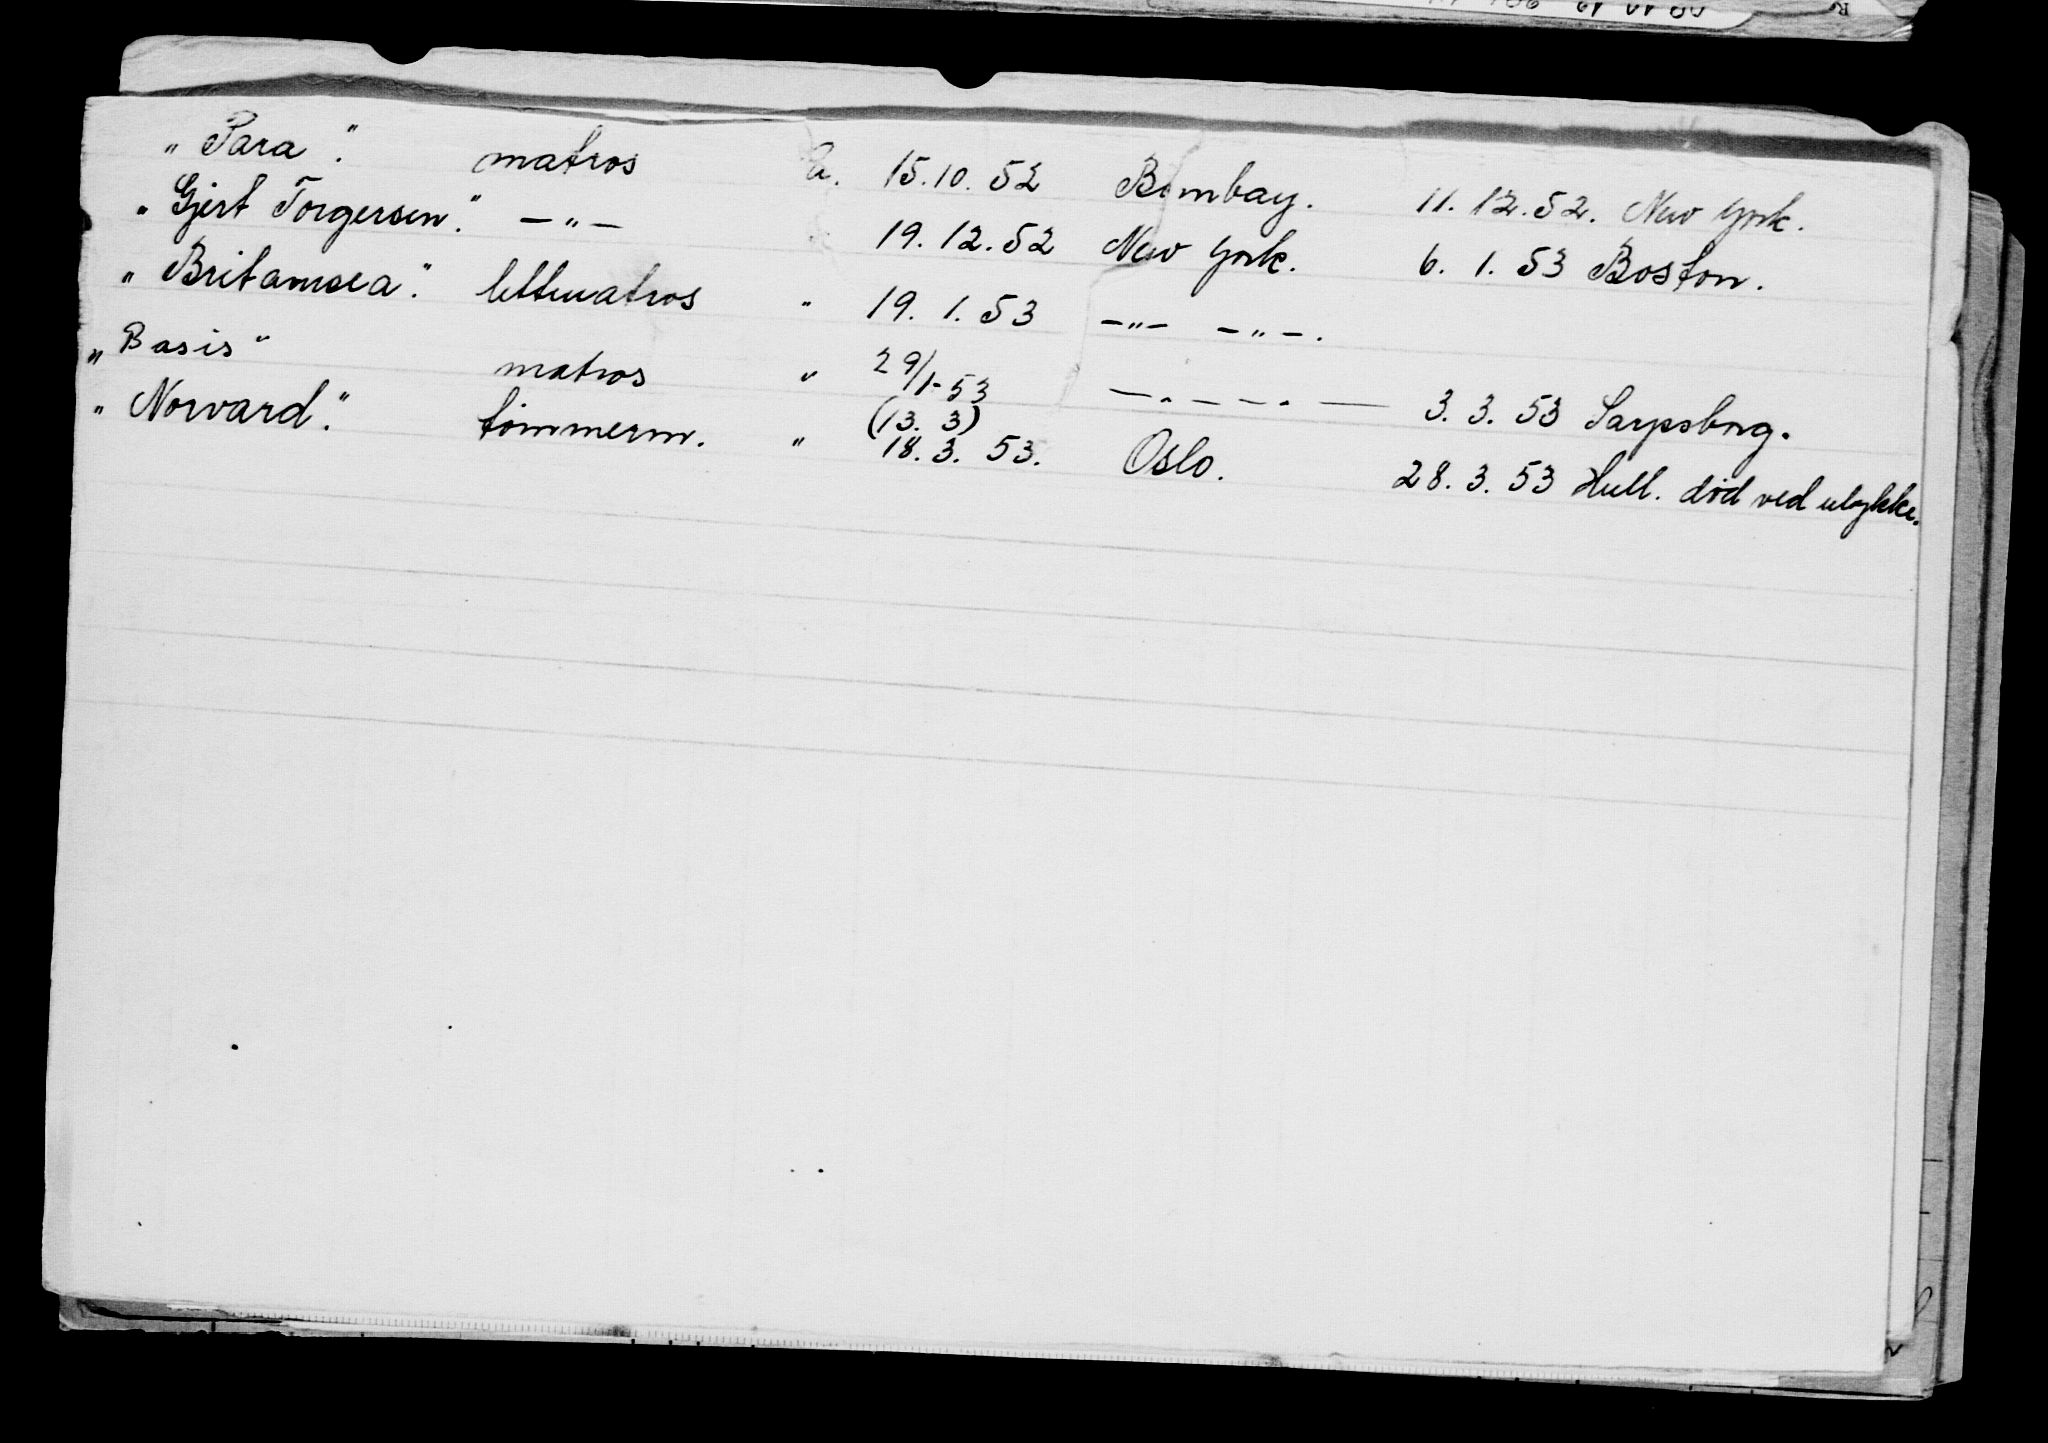 „ Para ". matros u. 15.10. 52 Bombay. 11. 12. 52. New York.
„ Gjert Torgersen." — " — 19. 12. 52 New York. 6. 1. 53 Boston.
„ Britamsea". lettmatros " 19. 1. 53 — " — — " — .
„ Basis " matros " 29/1-53 — " — — " — 3. 3. 53 Sarpsborg.
(13. 3)
„ Norvard". tømmerm. " 18. 3. 53. Oslo. 28. 3. 53 Hull. død ved ulykke.